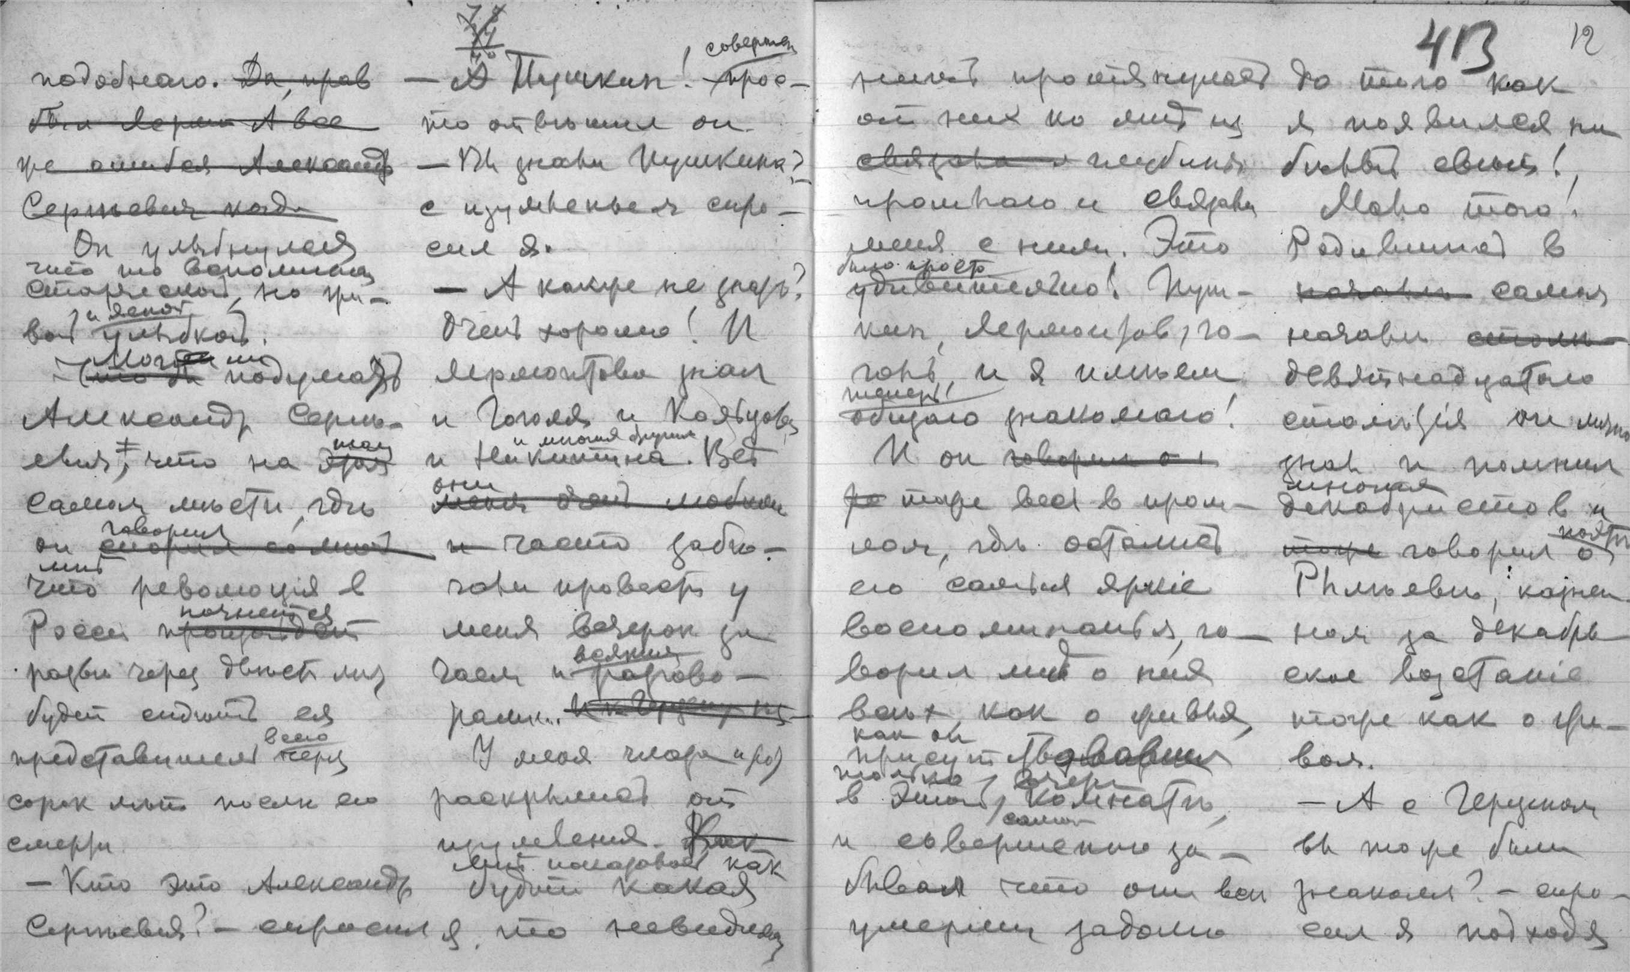 подобнаго. Да, прав
был Лермон А все
же ошибся Александр
Сергѣевич когда
Он улыбнулся
что то вспоминая
старческой, но жи-
вой и ясной улыбкой.
— Мог ли подумать
Александр Сергѣ-
евич, что на том
самом мѣстѣ, гдѣ
он говорил
что революция в
России начнется
развѣ через двѣсти лѣт
будет сидѣть ея
представитель всего через
сорок лѣт послѣ его
смерти.
— Кто это Александр
Сергѣевич? — спросил я.
74
— А Пушкин! совершен прос-
то отвѣтил он.
— Вы знали Пушкина?
с изумленьем спро-
сил я.
— А как же не знать?
Очень хорошо! И
Лермонтова знал
и Гоголя и Кольцова
и Никитина и многих других. Всѣ
они
и часто забѣ-
гали провесть у
меня вечерок за
чаем и всякими разгово-
рами..
У меня глаза
раскрылись от
изумления. Как
мнѣ показалось как
будто какая
то невидимая
413
12
нить протянулась
от них ко мнѣ из
связала глубины
прошлаго и связала
меня с ними. Это
было просто
удивительно! Пуш-
кин, Лермонтов, Го-
голь, и я имѣем
теперь
общаго знакомаго!
И он говорил о
же тоже весь в прош-
лом, гдѣ остались
его самыя яркие
воспоминанья, го-
ворил мнѣ о них
всѣх, как о живых,
как бы
только вчера
в этой комнатѣ,
и совершенно за-
бывая что они всѣ
умерли задолго
до того как
я появился на
бѣлый свѣт!
Мало того!
Родившись в
начале самом
началѣ столѣ-
девятнадцатаго
столѣтiя он лично
знал и помнил
многих
декабристов и
тоже говорил о
Рылѣевѣ, казнен-
ном за декабрь-
ское возстанiе
тоже как о жи-
вом.
— А с Герценом
вы тоже были
знакомы? — спро-
сил я подходя